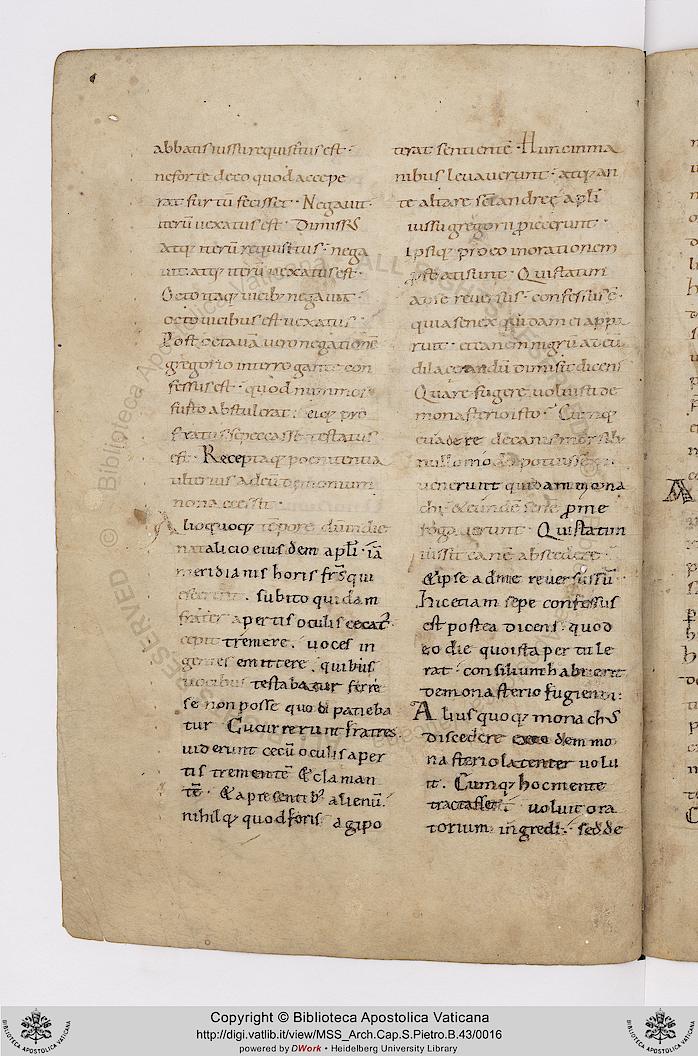 abbatis iussu requisitus est ·
ne forte deco quod accepe
rat furtū fecisset · Negavit ·
iterū vexatus est · Dimissus
atq; iterū requisitus · nega
vit · atq; iterū vexatus est ·
Octo itaq; vicib; negavit ·
octo vicibus est vexatus ·
Post octavā vero negationē
gregorio interrogante con
fessus est · quod nummos
furto abstulerat · eiq; pro
stratus se peccasse testatus
est · Receptaq; poenitentia
ulterius ad eū demonium
non accessit ·
Alio quoq; tēpore dum die
natalicio eiusdem apłi · iā
meridianis horis frs̄ qui
escerent · subito quidam
frater apertis oculis cecat᾽
cepit tremere · voces in
gentes emittere · quibus
vocibus testabatur ferre
se non posse quod patieba
tur Cucurrerunt fratres ·
viderunt cecū oculis aper
tis trementē & claman
tē · & a presentib; alienū ·
nihilq; quod foris agipo
terat sentientē · Hunc in ma
nibus levaverunt · atq; an
te altare sc̄i andreę apłi
iussu gregorii proiecerunt ·
Ipsiq; pro eo in orationem
prostrati sunt · Qui statim
ad se reversus · confessus ē ·
quia senex quidam ei appa
ruit · et canem nigrū ad eū
dilacerandū dimisit dicens
Quare fugere voluisti de
monasterio isto · Cumq;
evadere de canis morsib;
nullo modo potuissem ·
venerunt quidam mona
chi & eundē senē pro me
rogaverunt · Qui statim
iussit canē abscedere ·
& ipse ad me reversus sū ·
hic etiam sepe confessus
est postea dicens · quod
eo die quo ista pertule
rat · consilium habuerit
de monasterio fugiendi :
Alius quoq; monachus
discedere eodem mo
nasterio latenter volu
it · Cumq; hoc mente
tractasset · voluit ora
torium ingredi · sed de
Copyright © Biblioteca Apostolica Vaticana
http://digi.vatlib.it/view/MSS_Arch.Cap.S.Pietro.B.43/0016
powered by DWork • Heidelberg University Library